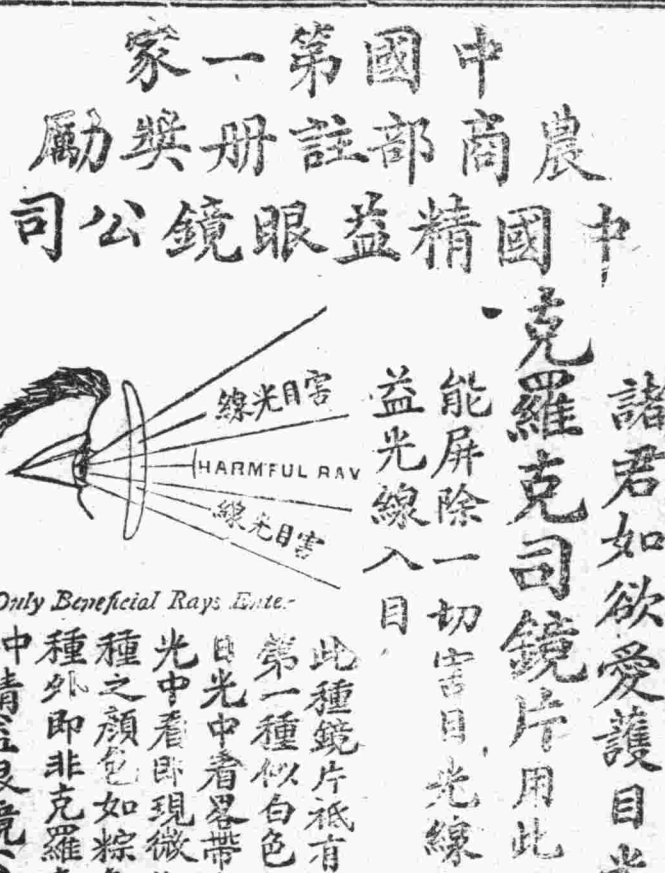 中國第一家
農商部註册獎勵
中國精益眼鏡公司
諸君如欲愛護目光
克羅克司鏡片用此
能屏除一切害目光線
益光線入目
害目光線
HARMFUL RAY
害目光線
Only Beneficial Rays Enter
此種鏡片祗有
第一種似白色
日光中看畧帶
光中看即現微
種之顏色如粽
種外即非克羅
中精益眼鏡